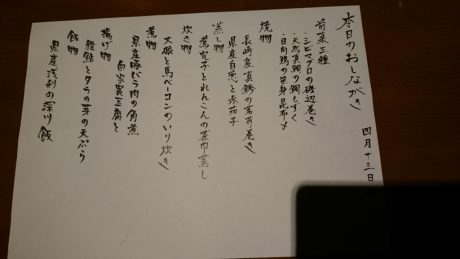 本日のおしながき
四月十三日
前菜三種
・シビマグロの磯辺巻き
・天然真鯛の鯛もずく
・日向鶏の笹身昆布〆
焼物
長崎産真鯵の
県産白葱と赤茄子
蒸し物
とれんこんの茶巾蒸し
炊き物
大根と馬ベーコンのいり炊き
煮物
県産豚ばら肉の角煮
自家製豆腐と
揚げ物
稚鮎とタラの芽の天ぷら
飯物
県産浅利の深川飯